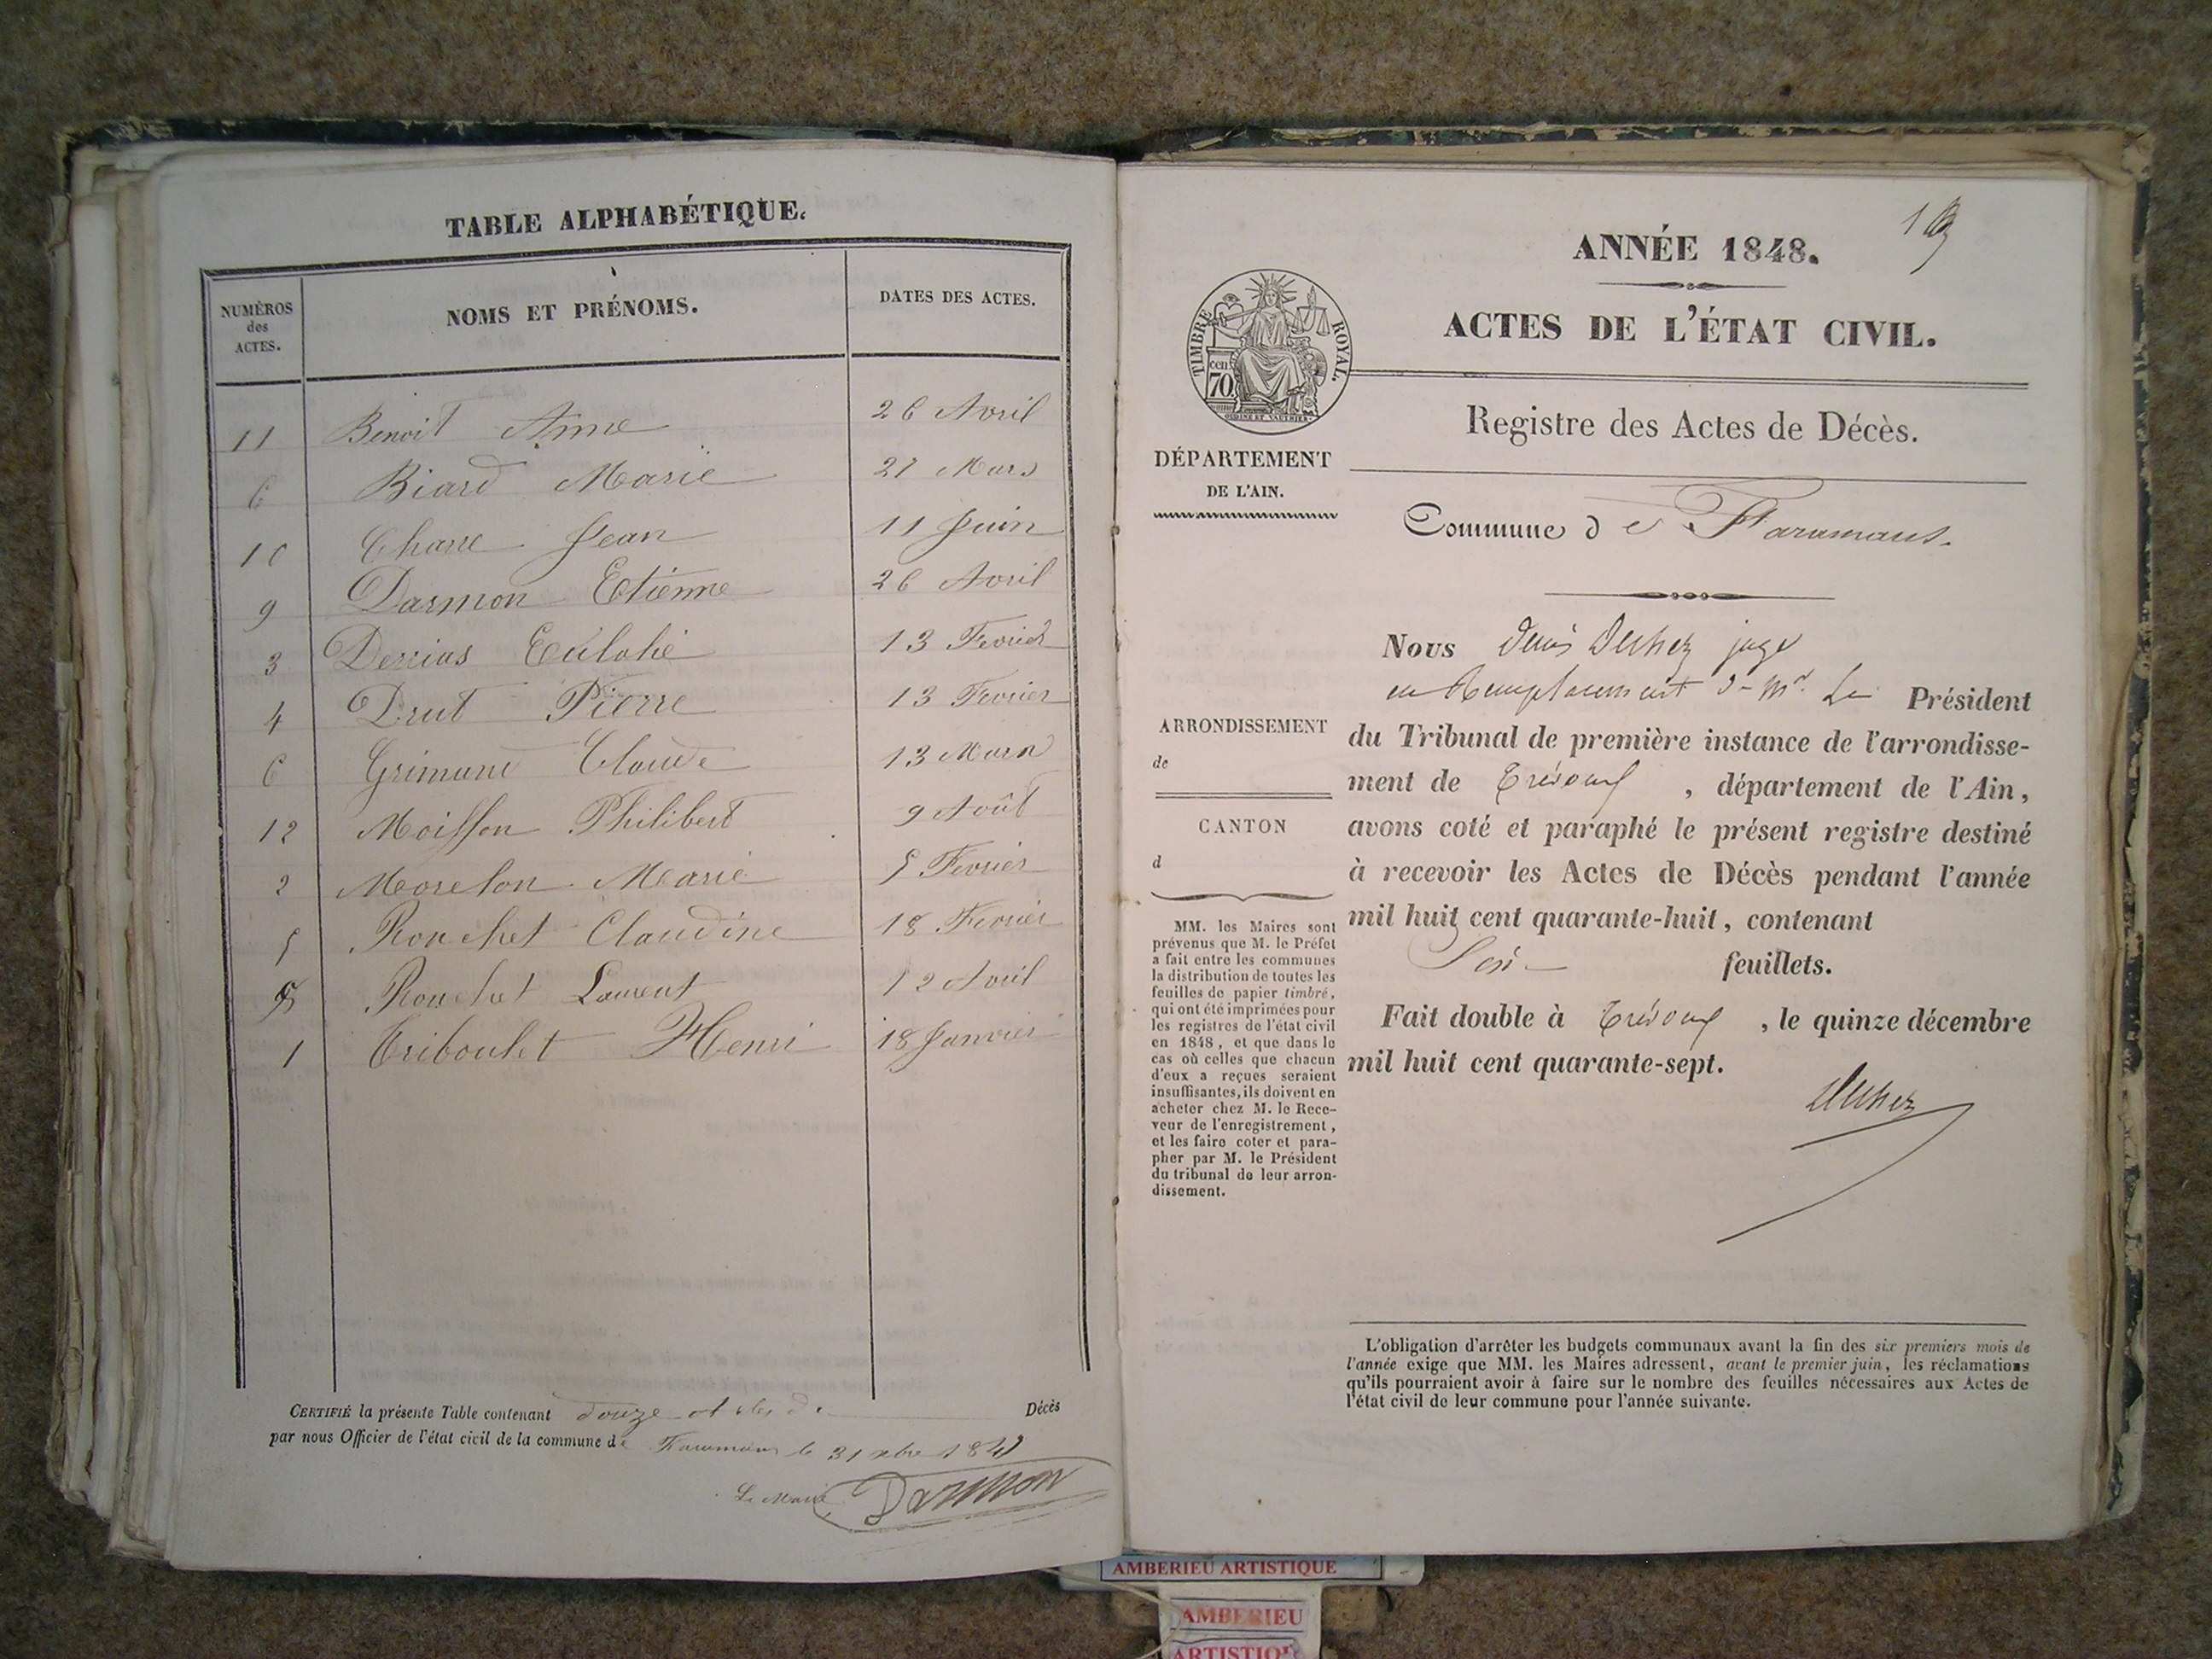 TABLE ALPHABÉTIQUE.
NUMÉROS des ACTES.
NOMS ET PRÉNOMS.
DATES DES ACTES.
11 Benoit Anne 26 Avril
6 Biard Marie 27 Mars
10 Charre Jean 11 Juin
9 Darmon Etienne 26 Avril
3 Derrias Eulalie 13 Fevrier
4 Drut Pierre 13 Fevrier
6 Grimand Claude 13 Mars
12 Moisson Philibert 9 Août
2 Morelon Marie 5 Fevrier
5 Ronchet Claudine 18 Fevrier
8 Ronchet Laurent 12 Avril
1 Triboulet Henri 18 Janvier
CERTIFIÉ la présente Table contenant douze actes de Décès
par nous Officier de l'état civil de la commune de Faramans le 31 xbre 184
Le Maire Darmon
ANNÉE 1848.
ACTES DE L'ÉTAT CIVIL.
TIMBRE ROYAL.
cen. 70.
Registre des Actes de Décès.
DÉPARTEMENT
DE L'AIN.
Commune de Faramans.
Nous Denis Duhez juge
en Remplacement de Mr. Le Président
du Tribunal de première instance de l'arrondisse-
ment de Trévoux, département de l'Ain,
avons coté et paraphé le présent registre destiné
à recevoir les Actes de Décès pendant l'année
mil huit cent quarante-huit, contenant
Six feuillets.
Fait double à Trévoux, le quinze décembre
mil huit cent quarante-sept.
Duhez
ARRONDISSEMENT
de
CANTON
d
MM. les Maires sont
prévenus que M. le Préfet
a fait entre les communes
la distribution de toutes les
feuilles de papier timbré,
qui ont été imprimées pour
les registres de l'état civil
en 1848, et que dans le
cas où celles que chacun
d'eux a reçues seraient
insuffisantes, ils doivent en
acheter chez M. le Rece-
veur de l'enregistrement,
et les faire coter et para-
pher par M. le Président
du tribunal de leur arron-
dissement.
L'obligation d'arrêter les budgets communaux avant la fin des six premiers mois de
l'année exige que MM. les Maires adressent, avant le premier juin, les réclamations
qu'ils pourraient avoir à faire sur le nombre des feuilles nécessaires aux Actes de
l'état civil de leur commune pour l'année suivante.
AMBERIEU ARTISTIQUE
AMBERIEU
ARTISTIQUE